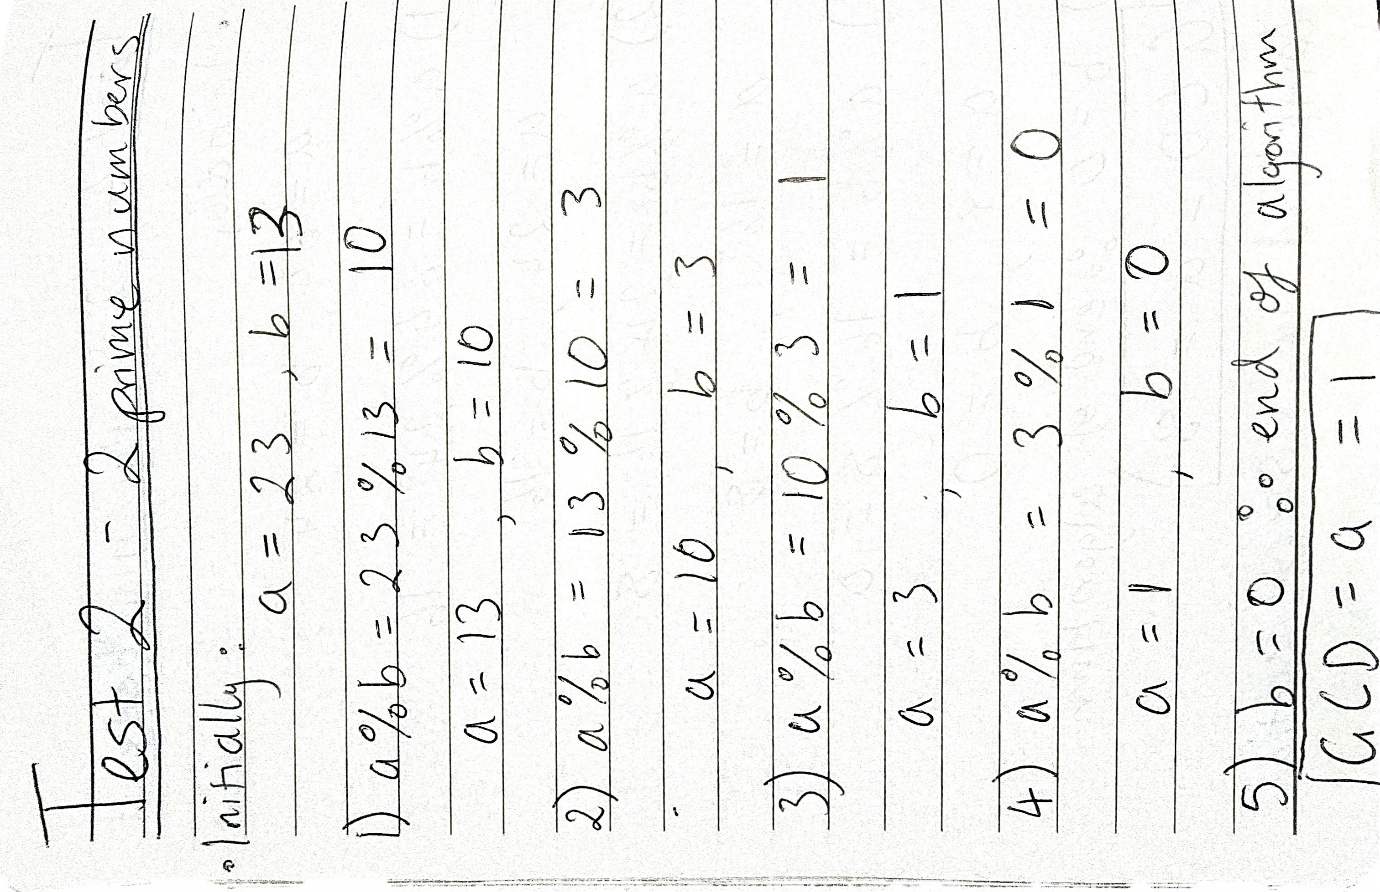 Test 2 - 2 prime numbers
• Initially:
a = 23, b = 13
1) a % b = 23 % 13 = 10
a = 13, b = 10
2) a % b = 13 % 10 = 3
a = 10, b = 3
3) a % b = 10 % 3 = 1
a = 3, b = 1
4) a % b = 3 % 1 = 0
a = 1, b = 0
5) b = 0 ∴ end of algorithm
GCD = a = 1